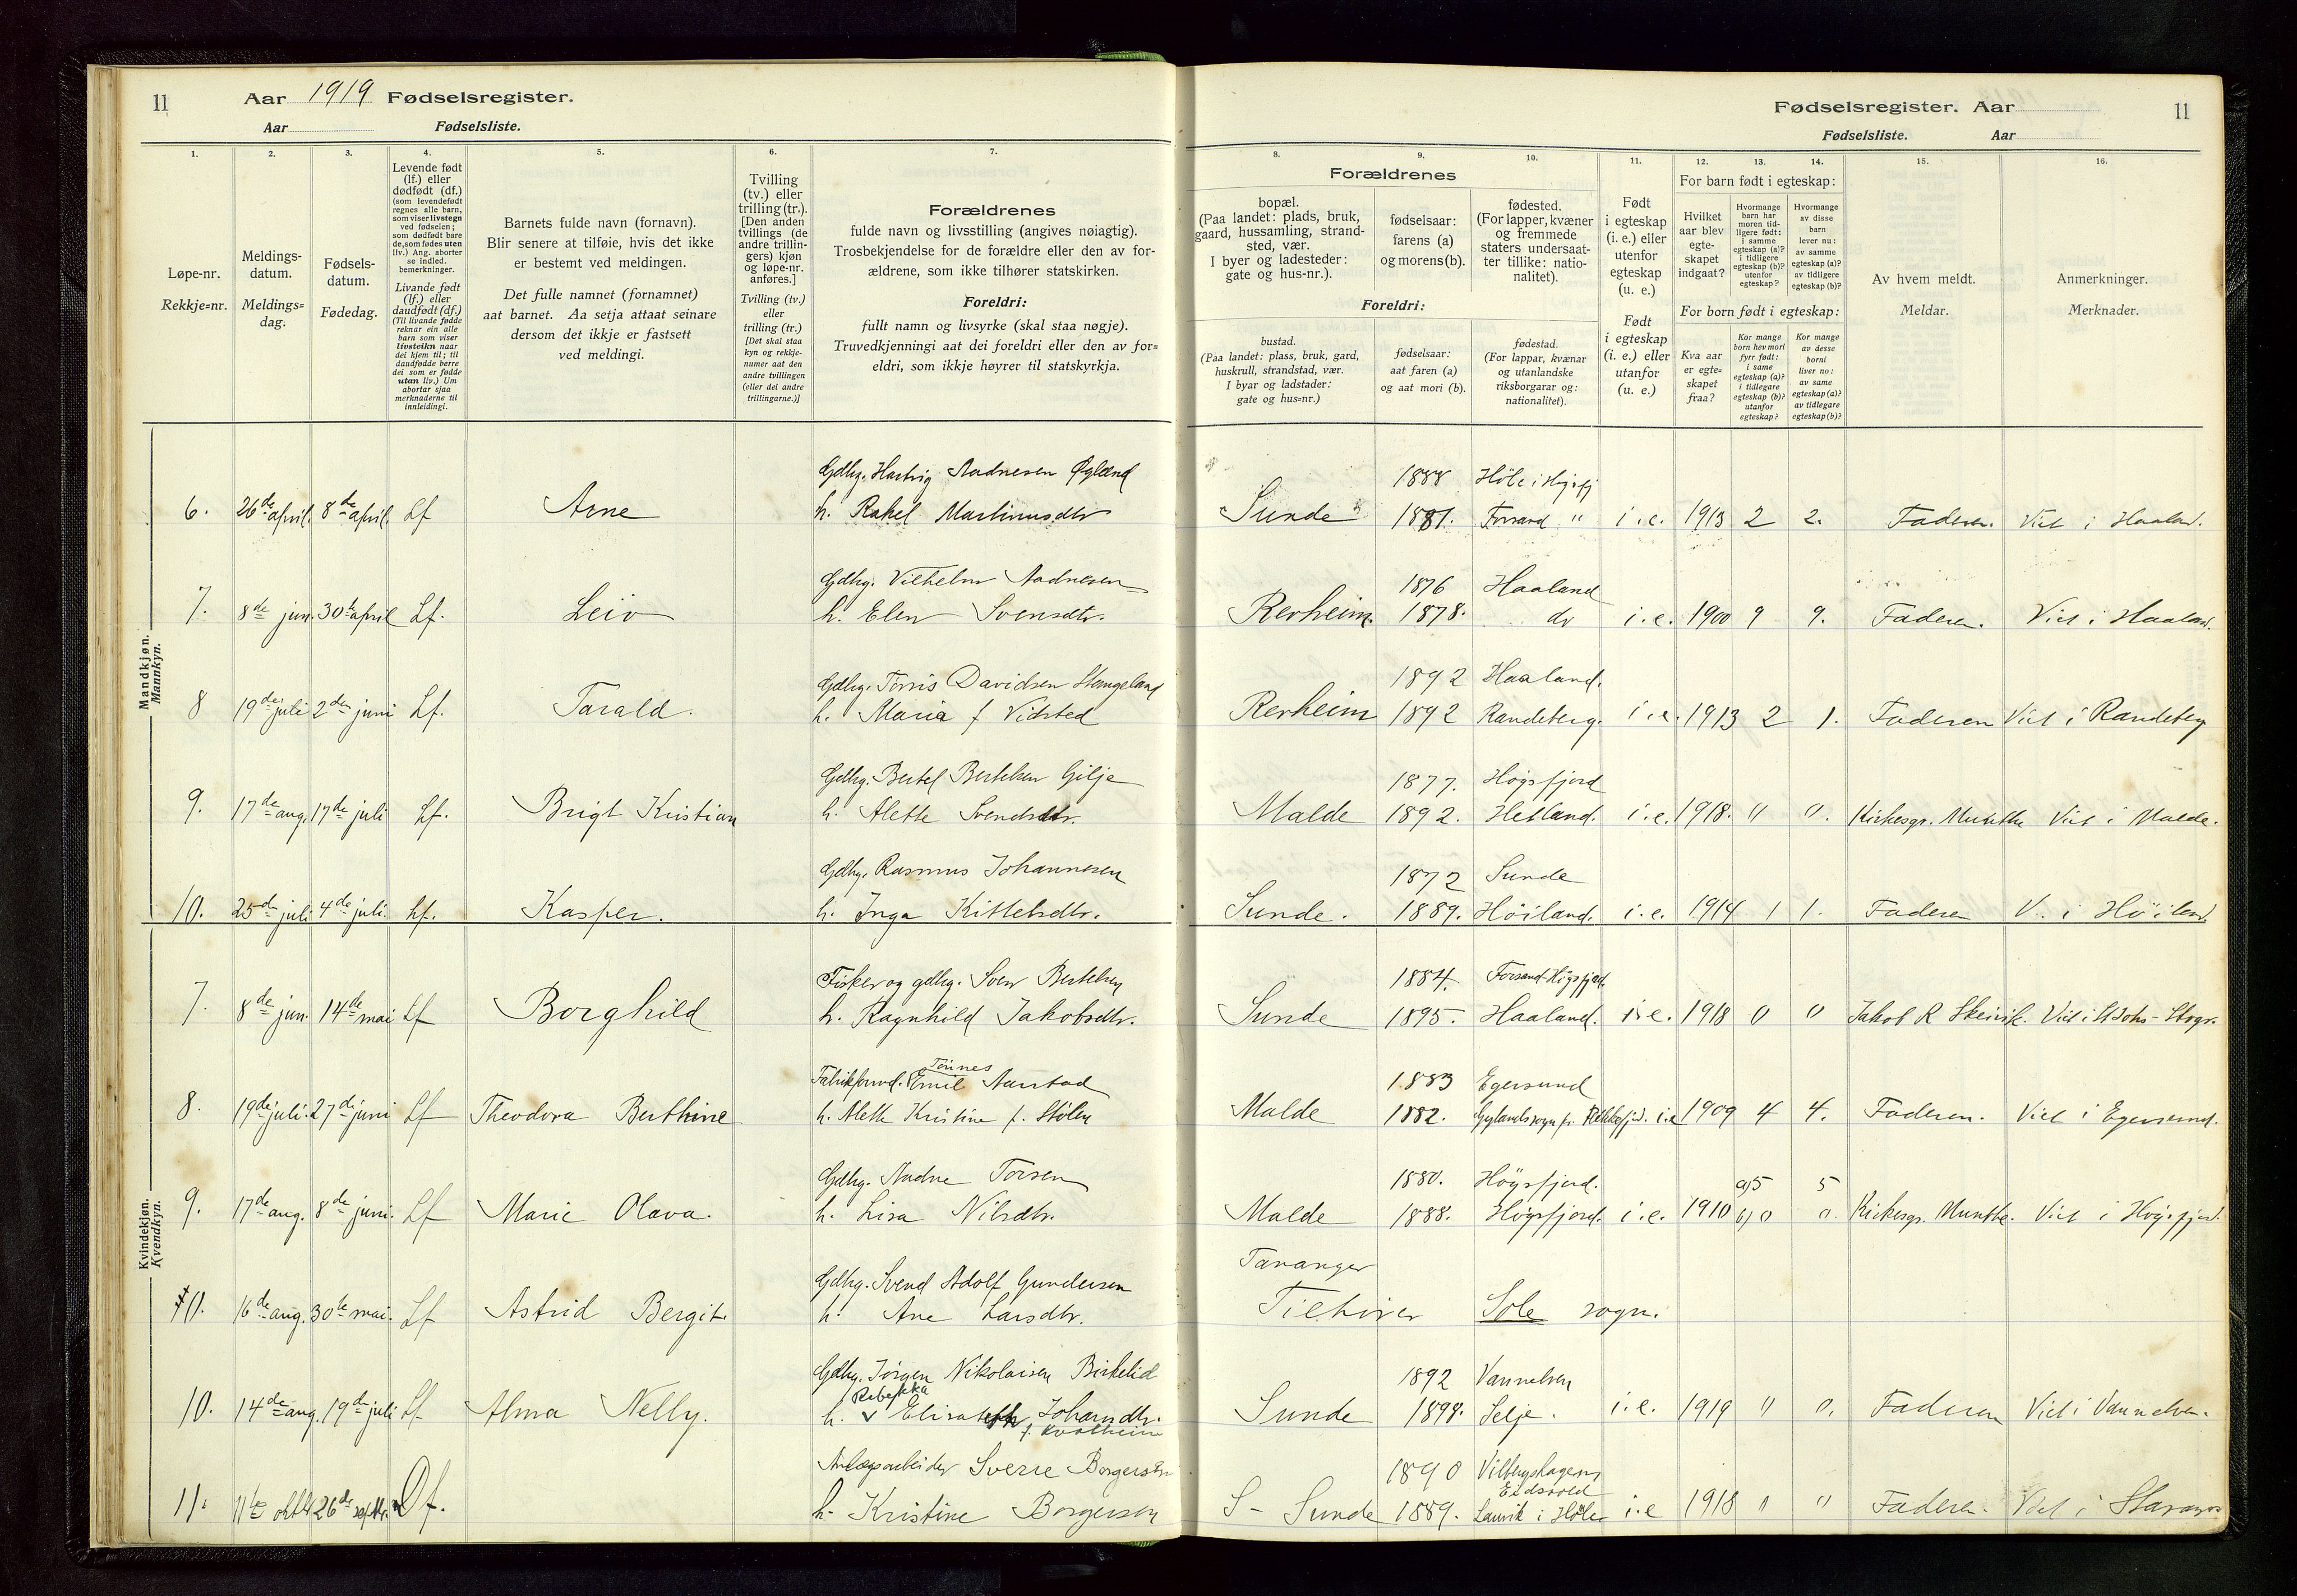 11
Aar 1919 Fødselsregister.
Aar Fødselsliste.
Fødselsregister. Aar
11
Fødselsliste. Aar
1.
2.
3.
4.
5.
6.
7.
8.
9.
10.
11.
12.
13.
14.
15.
16.
Løpe-nr.
Rekkje=nr.
Meldings-
datum.
Meldings=
dag.
Fødsels-
datum.
Fødedag.
Levende født
(lf.) eller
dødfødt (df.)
(som levendefødt
regnes alle barn,
som viser livstegn
ved fødselen;
som dødfødt bare
de, som fødes uten
liv.) Ang. aborter
se indled.
bemerkninger.
Livande født
(lf.) eller
daudfødt (df.)
(Til livande fødde
reknar ein alle
barn som viser
livsteikn naar
dei kjem til; til
daudfødde berre
dei som er fødde
utan liv.) Um
abortar sjaa
merknaderne til
innleidingi.
Barnets fulde navn (fornavn).
Blir senere at tilføie, hvis det ikke
er bestemt ved meldingen.
Det fulle namnet (fornamnet)
aat barnet. Aa setja attaat seinare
dersom det ikkje er fastsett
ved meldingi.
Tvilling
(tv.) eller
trilling (tr.).
[Den anden
tvillings (de
andre trillin-
gers) kjøn
og løpe-nr.
anføres.]
Tvilling (tv.)
eller
trilling (tr.)
[Det skal staa
kyn og rekkje-
numer aat den
andre tvillingen
(eller dei andre
trillingarne.)]
Forældrenes
fulde navn og livsstilling (angives nøiagtig).
Trosbekjendelse for de forældre eller den av for-
ældrene, som ikke tilhører statskirken.
Foreldri:
fullt namn og livsyrke (skal staa nøgje).
Truvedkjenningi aat dei foreldri eller den av for=
eldri, som ikkje høyrer til statskyrkja.
Forældrenes
bopæl.
(Paa landet: plads, bruk,
gaard, hussamling, strand-
sted, vær.
I byer og ladesteder:
gate og hus-nr.).
fødselsaar:
farens (a)
og morens (b).
fødested.
(For lapper, kvæner
og fremmede
staters undersaat-
ter tillike: natio-
nalitet).
Foreldri:
bustad.
(Paa landet: plass, bruk, gard,
huskrull, strandstad, vær.
I byar og ladstader:
gate og hus=nr.)
fødselsaar:
aat faren (a)
og aat mori (b).
fødestad.
(For lappar, kvænar
og utanlandske
riksborgarar og:
nationalitet).
Født
i egteskap
(i. e.) eller
utenfor
egteskap
(u. e.)
Født
i egteskap
(i. e.) eller
utanfor
(u. e.)
For barn født i egteskap:
Hvilket
aar blev
egte-
skapet
indgaat?
Hvormange
barn har
moren tid-
ligere født:
i samme
egteskap (a)?
i tidligere
egteskap (b)?
utenfor
egteskap?
Hvormange
av disse
barn
lever nu:
av samme
egteskap (a)?
av tidligere
egteskap (b)?
For born født i egteskap:
Kva aar
er egte=
skapet
fraa?
Kor mange
born hev mori
fyrr født:
i same
egteskap (a)?
i tidlegare
egteskap (b)?
utanfor
egteskap?
Kor mange
av desse
borni
liver no:
av same
egteskap (a)?
av tidlegare
egteskap (b)?
Av hvem meldt.
Meldar.
Anmerkninger.
Merknader.
Mandkjøn.
Mannkyn.
Gdbg. Hartvig Aadnesen Øglænd 1888 Höle i Högsfj
6. 26de april. 8de april. Lf Arne h. Rakel Martinusdtr Sunde 1881. Forsand " i.e. 1913 2 2. Faderen. Viet i Haaland.
Gdbg. Vilhelm Aadnesen 1876 Haaland
7. 8de jun. 30te april Lf. Leiv h. Elen Svensdtr. Rerheim. 1878. do i.e. 1900 9 9. Faderen. Viet i Haaland.
Gdbg. Tørris Davidsen Stangeland 1892 Haaland.
8 19de juli 2den juni Lf. Tarald. h. Maria f Vidsted Rerheim 1892 Randeberg. i.e. 1913 2 1. Faderen Viet i Randeberg
Gdbg. Bertel Bertelsen Gilje 1877. Högsfjord
9. 17de aug. 17de juli Lf. Brigt Kristian h. Alette Svendsdtr. Malde 1892. Hetland. i.e. 1918. 0 0. Kirkesgr. Munthe Viet i Malde.
Gdbg. Rasmus Johannesen 1872 Sunde
10. 25de juli 4de juli. Lf. Kasper. h. Inga Kittelsdtr. Sunde. 1889. Höiland. i.e. 1914 1 1. Faderen V. i Höiland
Kvindekjøn.
Kvendkyn.
Fisker og gdbg. Sven Bertelsen 1884. Forsand-Högsfjord.
7. 8de jun. 14de mai Lf Borghild h. Ragnhild Jakobsdtr. Sunde 1895. Haaland. i.e. 1918 0 0 Jakob R Skeivik. Viet i St Johs-Stvgr.
Tønnes
Fabrikforv. Emil Aarstad 1883 Egersund
8. 19de juli. 27de juni Lf Theodora Berthine h. Mette Kristine f. Stølen Malde 1882. Gylands sogn pr. Flekkefjd. i.e 1909 4 4. Faderen. Viet i Egersund.
Gdbg. Aadne Torsen 1880. Högsfjord. a)5 5
9. 17de aug. 8de juni. Lf Marie Olava. h. Lisa Nilsdtr. Malde 1888. Högsfjord. i.e. 1910 b)0 0. Kirkesgr. Munthe. Viet i Högsfjord.
Gdbg. Svend Adolf Gundersen Tananger
10. 16de aug. 30te mai. Lf Astrid Bergit. h. Ane Larsdtr. Tilhører Sole sogn.
Gdbg. Jørgen Nikolaisen Birkelid 1892 Vannelven
Rebekka
10. 14de aug. 19de juli Lf Alma Nelly. h. v Elisabeth Johansdtr. Sunde 1898. Selje. i.e. 1919 0 0. Faderen Viet i Vannelven.
f. Kvalheim
Anlægsarbeider Sverre Borgersen 1890 Vilbergshagen
Eidsvold
11. 11te okt 26de septbr. Df. h. Kristine Borgersen S- Sunde 1889. Lauvik i Höle i.e 1918 0 0 Faderen. Viet i Stavanger